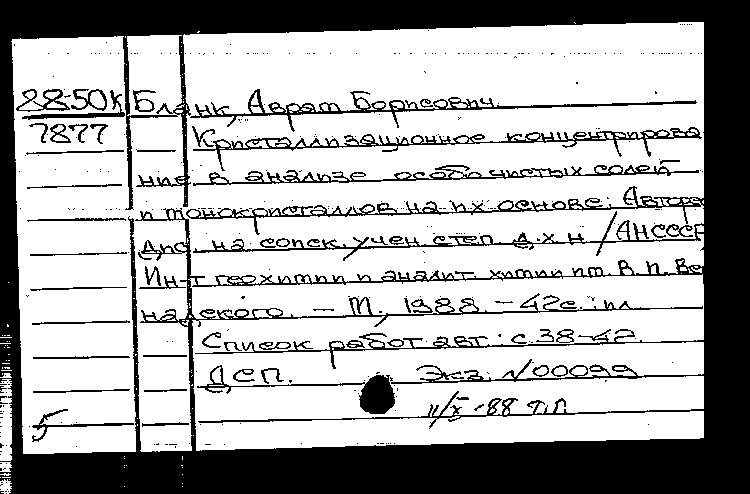 28-50К Бланк, Аврам Борисович.
7877 Кристаллизационное концентрирова
ние в анализе особо чистых солей
и монокристаллов на их основе: Авторе
дис. на соиск. учен. степ. д. х. н. / АН СССР,
Ин-т геохимии и аналит. химии им. В. И. Вер
надского. — М., 1988. — 42с.: ил.
Список работ авт.: с.38-42.
ДСП. Экз. №00099
11/X-88 Т.П.
5